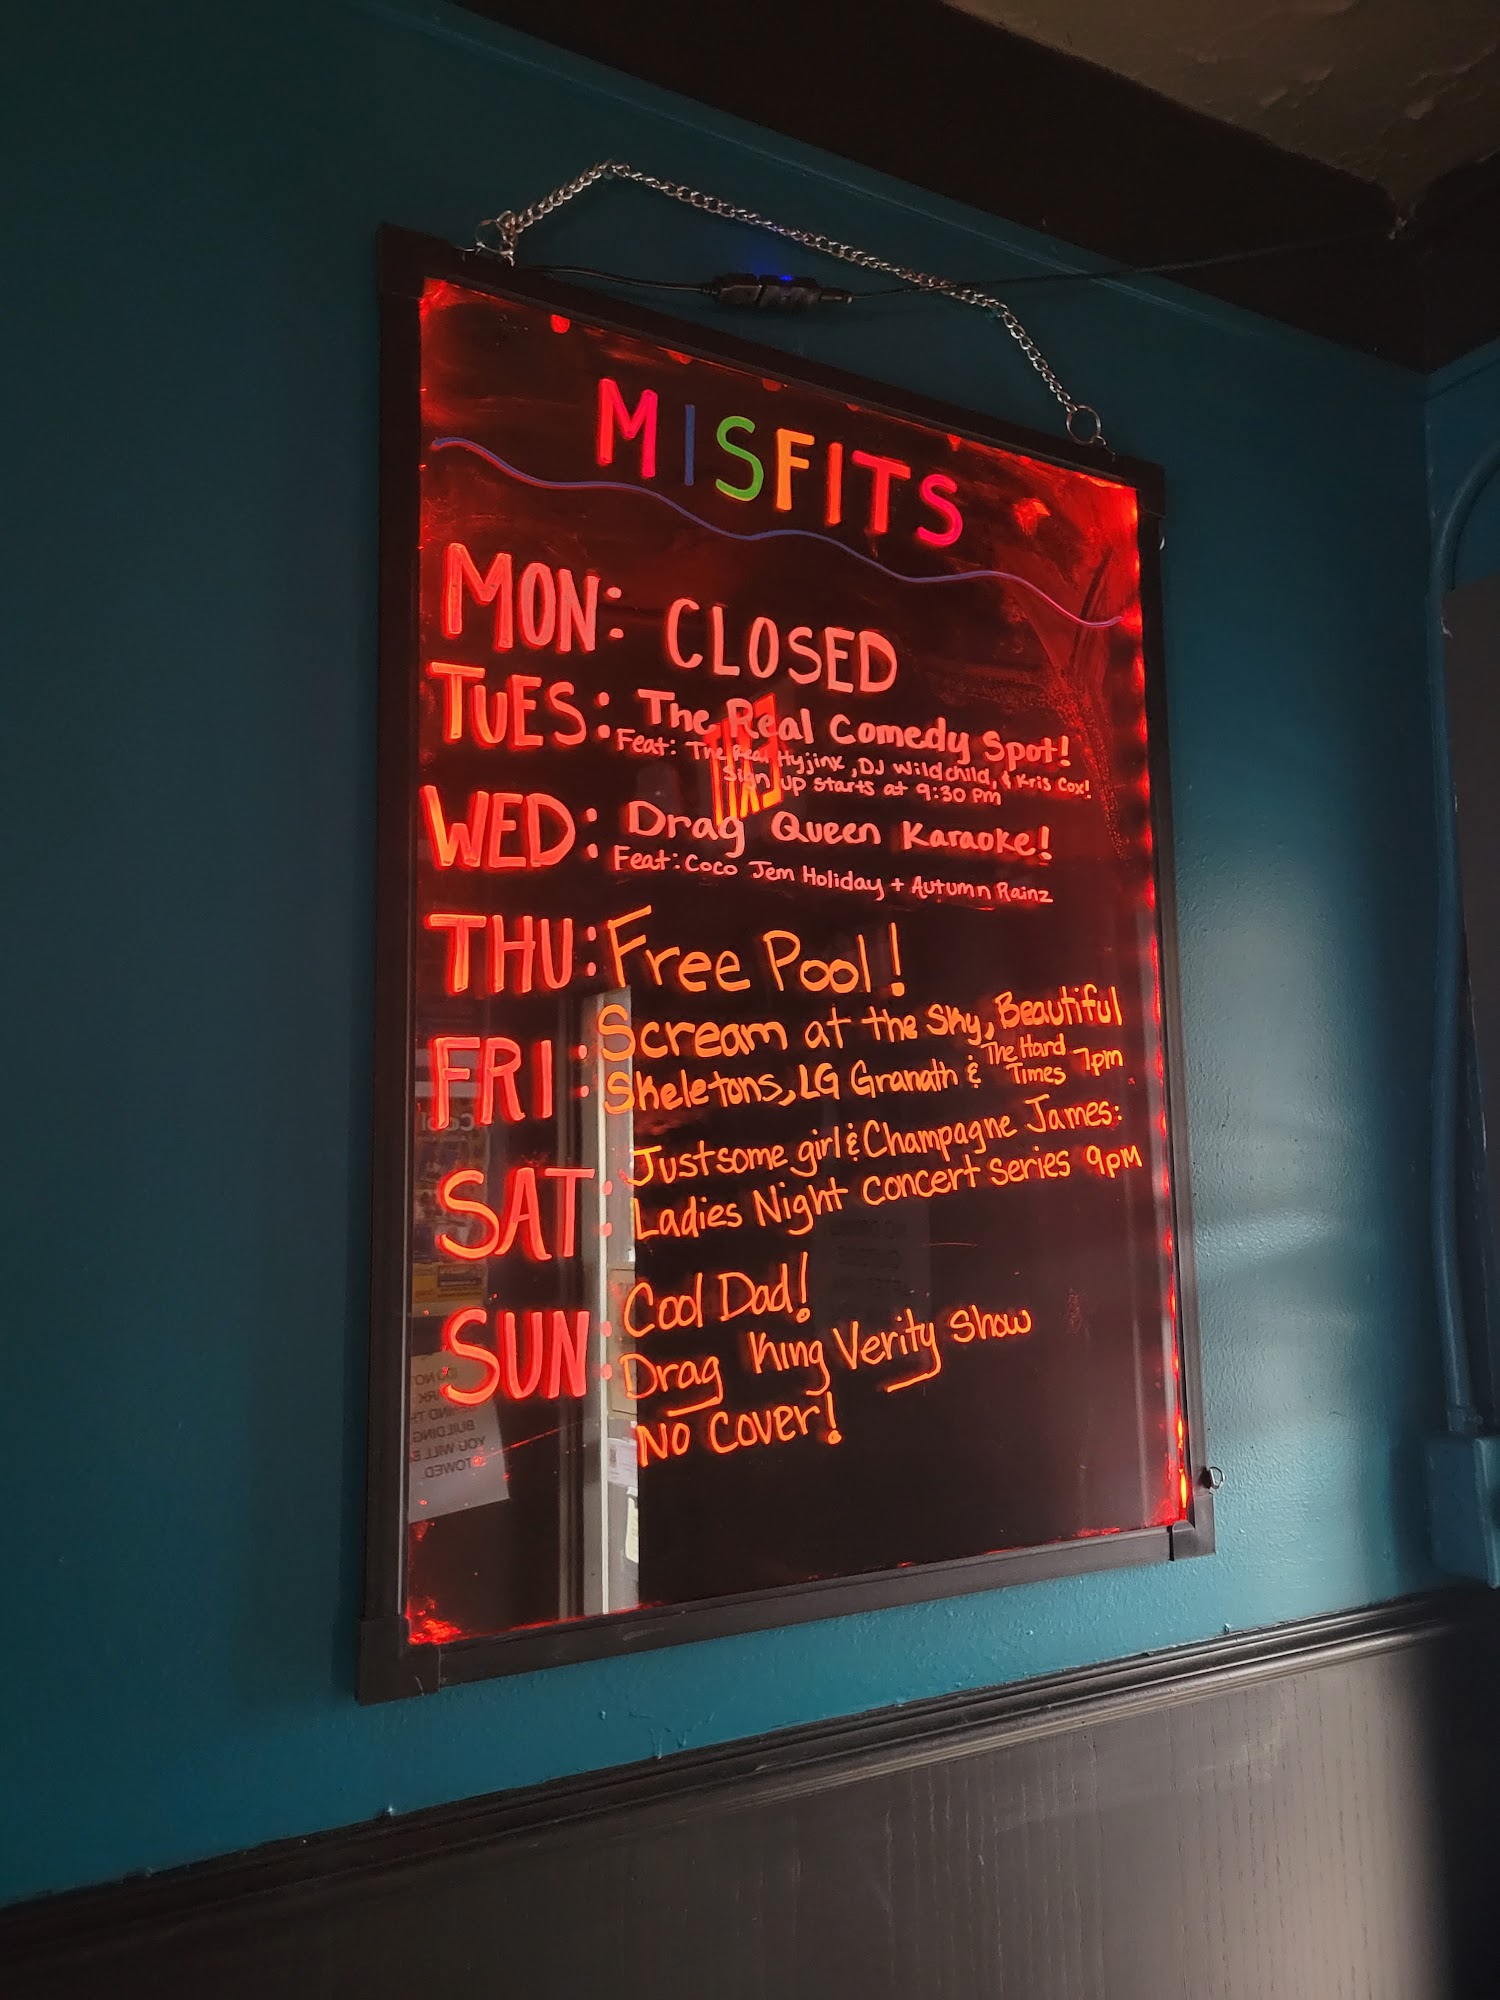 MISFITS
MON: CLOSED
TUES: The Real Comedy Spot!
Feat: The Real Hyjinx, DJ Wildchild, & Kris Cox!
Sign up starts at 9:30 PM
WED: Drag Queen Karaoke!
Feat: Coco Jem Holiday + Autumn Rainz
THU: Free Pool!
FRI: Scream at the Sky, Beautiful
Skeletons, LG Granath & The Hard Times 7pm
SAT: Justsome girl & Champagne James:
Ladies Night concert series 9pm
SUN: Cool Dad!
Drag King Verity Show
NO COVER!
EXIT
DO NOT
PARK
BEHIND TH
BUILDING
YOU WILL B
TOWED.